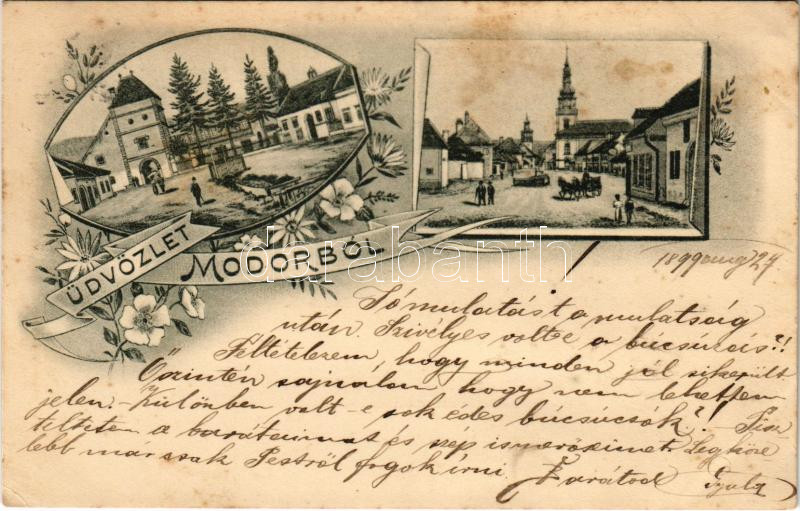 ÜDVÖZLET MODORBÓL
darabanth
! 1899 aug 27
Jó mulatást a mulatság
után. Szivélyes volt-e a bucsúzás?!
Feltételezem, hogy minden jól sikerült
Őszintén sajnálom, hogy nem lehettem
jelen. Különben volt-e sok édes búcsúcsók?! Tisz
teltetem a barátaimat és szép ismerőseimet. Legköze
lebb már csak Pestről fogok írni. Barátod Gyula